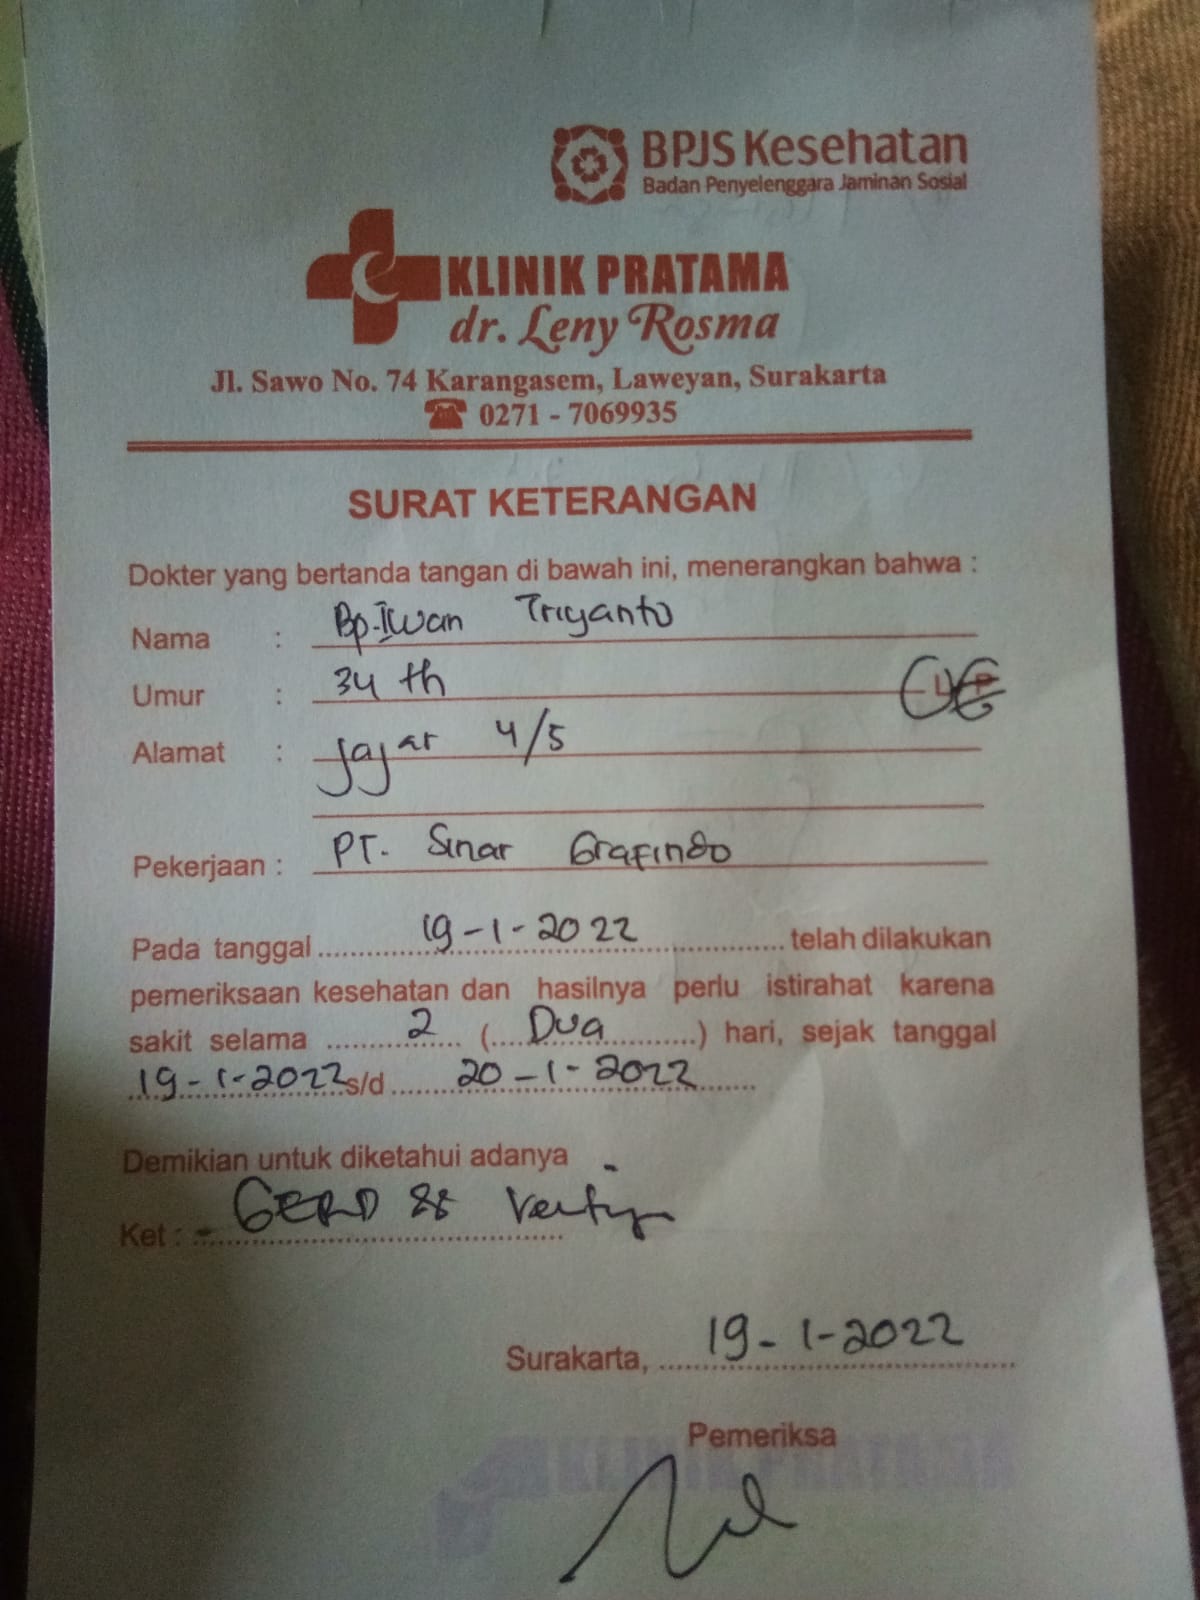 BPJS Kesehatan
Badan Penyelenggara Jaminan Sosial
KLINIK PRATAMA
dr. Leny Rosma
Jl. Sawo No. 74 Karangasem, Laweyan, Surakarta
☎ 0271 - 7069935
SURAT KETERANGAN
Dokter yang bertanda tangan di bawah ini, menerangkan bahwa :
Nama : Bp. Iwan Triyanto
Umur : 34 th L P
Alamat : Jajar 4/5
Pekerjaan : PT. Sinar Grafindo
Pada tanggal 19-1-2022 telah dilakukan
pemeriksaan kesehatan dan hasilnya perlu istirahat karena
sakit selama 2 (Dua) hari, sejak tanggal
19-1-2022 s/d 20-1-2022
Demikian untuk diketahui adanya
Ket : - GERD Vertigo
Surakarta, 19-1-2022
Pemeriksa
KLINIK PRATAMA